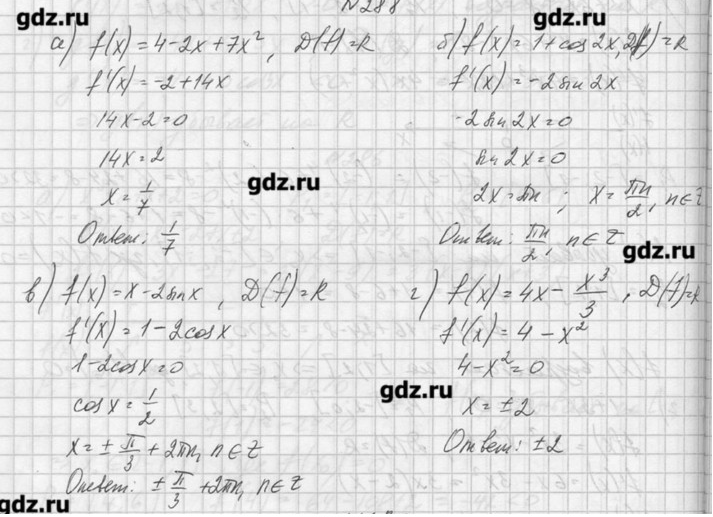 №288
gdz.ru
gdz.ru
а) f(x) = 4-2x+7x², D(f)=R
f'(x) = -2+14x
14x-2=0
14x=2
x = 1/7
Ответ: 1/7
б) f(x) = 1+cos2x, D(f)=R
f'(x) = -2sin2x
-2sin2x=0
sin2x=0
2x=πn ; x= πn/2, n∈Z
Ответ: πn/2, n∈Z
gdz.ru
gdz.ru
в) f(x) = x-2sinx, D(f)=R
f'(x) = 1-2cosx
1-2cosx=0
cosx= 1/2
x= ± π/3 + 2πn, n∈Z
Ответ: ± π/3 +2πn, n∈Z
г) f(x) = 4x- x³/3, D(f)=R
f'(x) = 4-x²
4-x²=0
x=±2
Ответ: ±2
gdz.ru
gdz.ru